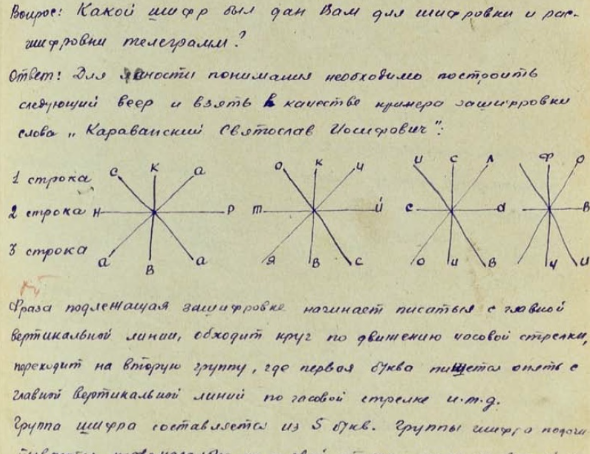 Вопрос: Какой шифр был дан Вам для шифровки и рас-
шифровки телеграмм?
Ответ: Для ясности понимания необходимо построить
следующий веер и взять в качестве примера зашифровки
слова „Караванский Святослав Иосифович":
1 строка С К а О К и И С Л Ф О
2 строка Н Р Т Й С а В
3 строка а В а Я В С О и В Ч И
Фраза подлежащая зашифровке начинает писаться с главной
вертикальной линии, обходит круг по движению часовой стрелки,
переходит на вторую группу, где первая буква пишется опять с
главной вертикальной линий по часовой стрелке и.т.д.
Группа шифра составляется из 5 букв. Группы шифра